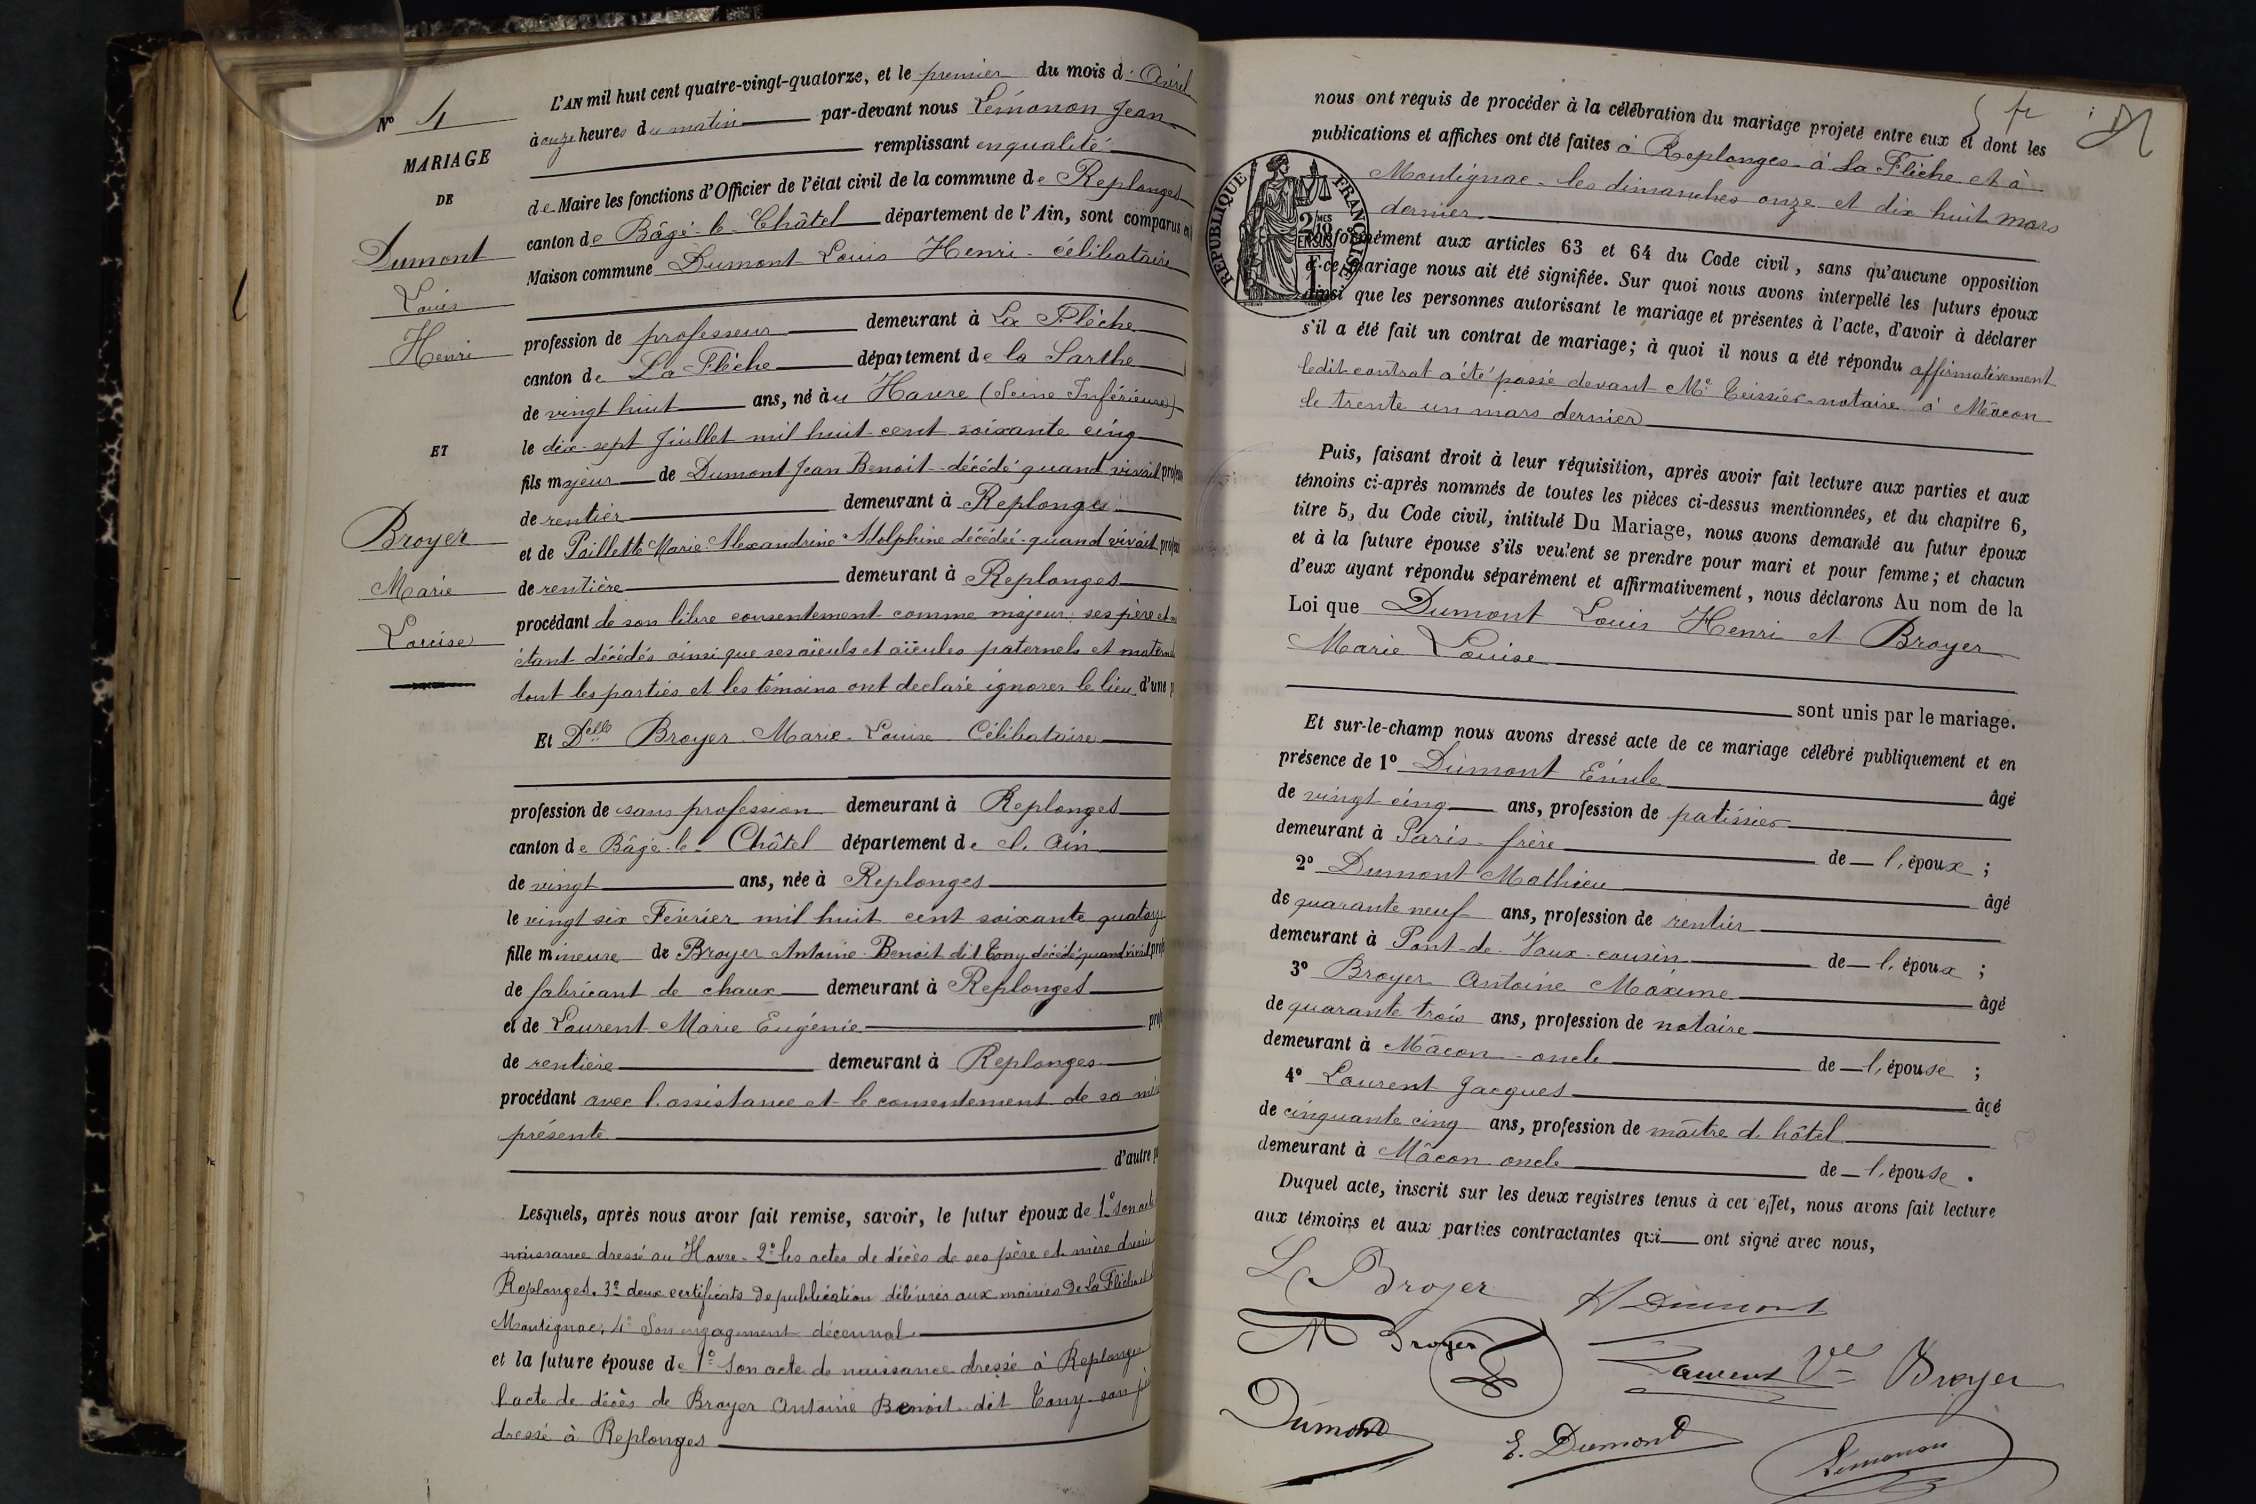 N° 4
MARIAGE
DE
Dumont
Louis
Henri
ET
Broyer
Marie
Louise
L'AN mil huit cent quatre-vingt-quatorze, et le premier du mois d'Avril
à onze heures du matin par-devant nous Lémonon Jean
remplissant en qualité
de Maire les fonctions d'Officier de l'état civil de la commune de Replonges
canton de Bâgé-le-Châtel département de l'Ain, sont comparus en
Maison commune Dumont Louis Henri célibataire
profession de professeur demeurant à La Flèche
canton de La Flèche département de la Sarthe
de vingt huit ans, né au Havre (Seine Inférieure)
le dix-sept Juillet mil huit cent soixante cinq
fils majeur de Dumont Jean Benoit décédé quand vivait profess
de rentier demeurant à Replonges
et de Paillette Marie Alexandrine Adolphine décédée quand vivait profess
de rentière demeurant à Replonges
procédant de son libre consentement comme majeur, ses père et m
étant décédés ainsi que ses aïeuls et aïeules paternels et matern
dont les parties et les témoins ont déclaré ignorer le lieu d'une p
Et Delle Broyer Marie Louise Célibataire
profession de sans profession demeurant à Replonges
canton de Bâgé-le-Châtel département de l'Ain
de vingt ans, née à Replonges
le vingt six Février mil huit cent soixante quatorze
fille mineure de Broyer Antoine Benoit dit Tony décédé quand vivait profe
de fabricant de chaux demeurant à Replonges
et de Laurent Marie Eugénie prof
de rentière demeurant à Replonges
procédant avec l'assistance et le consentement de sa mère
présente
d'autre p
Lesquels, après nous avoir fait remise, savoir, le futur époux de 1° son acte
naissance dressé au Havre - 2° les actes de décès de ses père et mère dressés
Replonges. 3° deux certificats de publication délivrés aux mairies de La Flèche et
Montignac, 4° Son engagement décennal
et la future épouse de 1° Son acte de naissance dressé à Replonges
l'acte de décès de Broyer Antoine Benoit dit Tony son pè
dressé à Replonges
nous ont requis de procéder à la célébration du mariage projeté entre eux et dont les
publications et affiches ont été faites à Replonges à La Flèche et à
Montignac les dimanches onze et dix huit mars
dernier
REPUBLIQUE FRANÇAISE
2/10MES EN SUS
conformément aux articles 63 et 64 du Code civil, sans qu'aucune opposition
à ce mariage nous ait été signifiée. Sur quoi nous avons interpellé les futurs époux
ainsi que les personnes autorisant le mariage et présentes à l'acte, d'avoir à déclarer
s'il a été fait un contrat de mariage; à quoi il nous a été répondu affirmativement
ledit contrat a été passé devant Me Teissier notaire à Mâcon
le trente un mars dernier
Puis, faisant droit à leur réquisition, après avoir fait lecture aux parties et aux
témoins ci-après nommés de toutes les pièces ci-dessus mentionnées, et du chapitre 6,
titre 5, du Code civil, intitulé Du Mariage, nous avons demandé au futur époux
et à la future épouse s'ils veulent se prendre pour mari et pour femme; et chacun
d'eux ayant répondu séparément et affirmativement, nous déclarons Au nom de la
Loi que Dumont Louis Henri et Broyer
Marie Louise
sont unis par le mariage.
Et sur-le-champ nous avons dressé acte de ce mariage célébré publiquement et en
présence de 1° Dumont Emile âgé
de vingt cinq ans, profession de patissier
demeurant à Paris frère de l'époux ;
2° Dumont Mathieu âgé
de quarante neuf ans, profession de rentier
demeurant à Pont-de-Vaux cousin de l'époux ;
3° Broyer Antoine Maxime âgé
de quarante trois ans, profession de notaire
demeurant à Mâcon oncle de l'épouse ;
4° Laurent Jacques âgé
de cinquante cinq ans, profession de maître d'hôtel
demeurant à Mâcon oncle de l'épouse.
Duquel acte, inscrit sur les deux registres tenus à cet effet, nous avons fait lecture
aux témoins et aux parties contractantes qui ont signé avec nous,
L Broyer H Dumont
M Broyer Laurent Vve Broyer
Dumont E. Dumont Lémonon